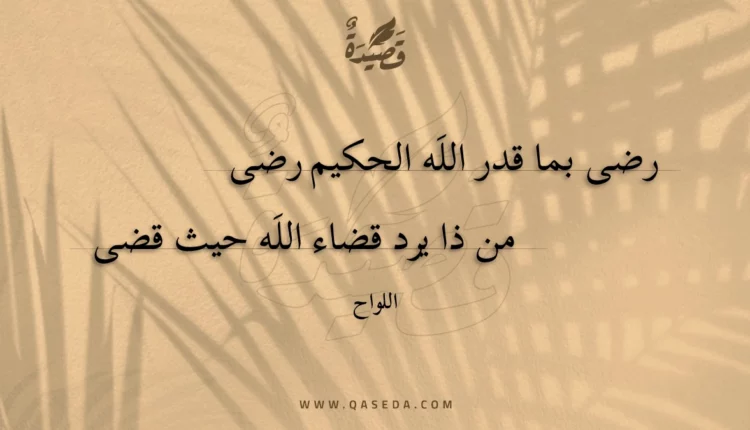 قَصِيْدَةٌ
رضى بما قدر اللَه الحكيم رضى
من ذا يرد قضاء اللَه حيث قضى
اللواح
WWW.QASEDA.COM